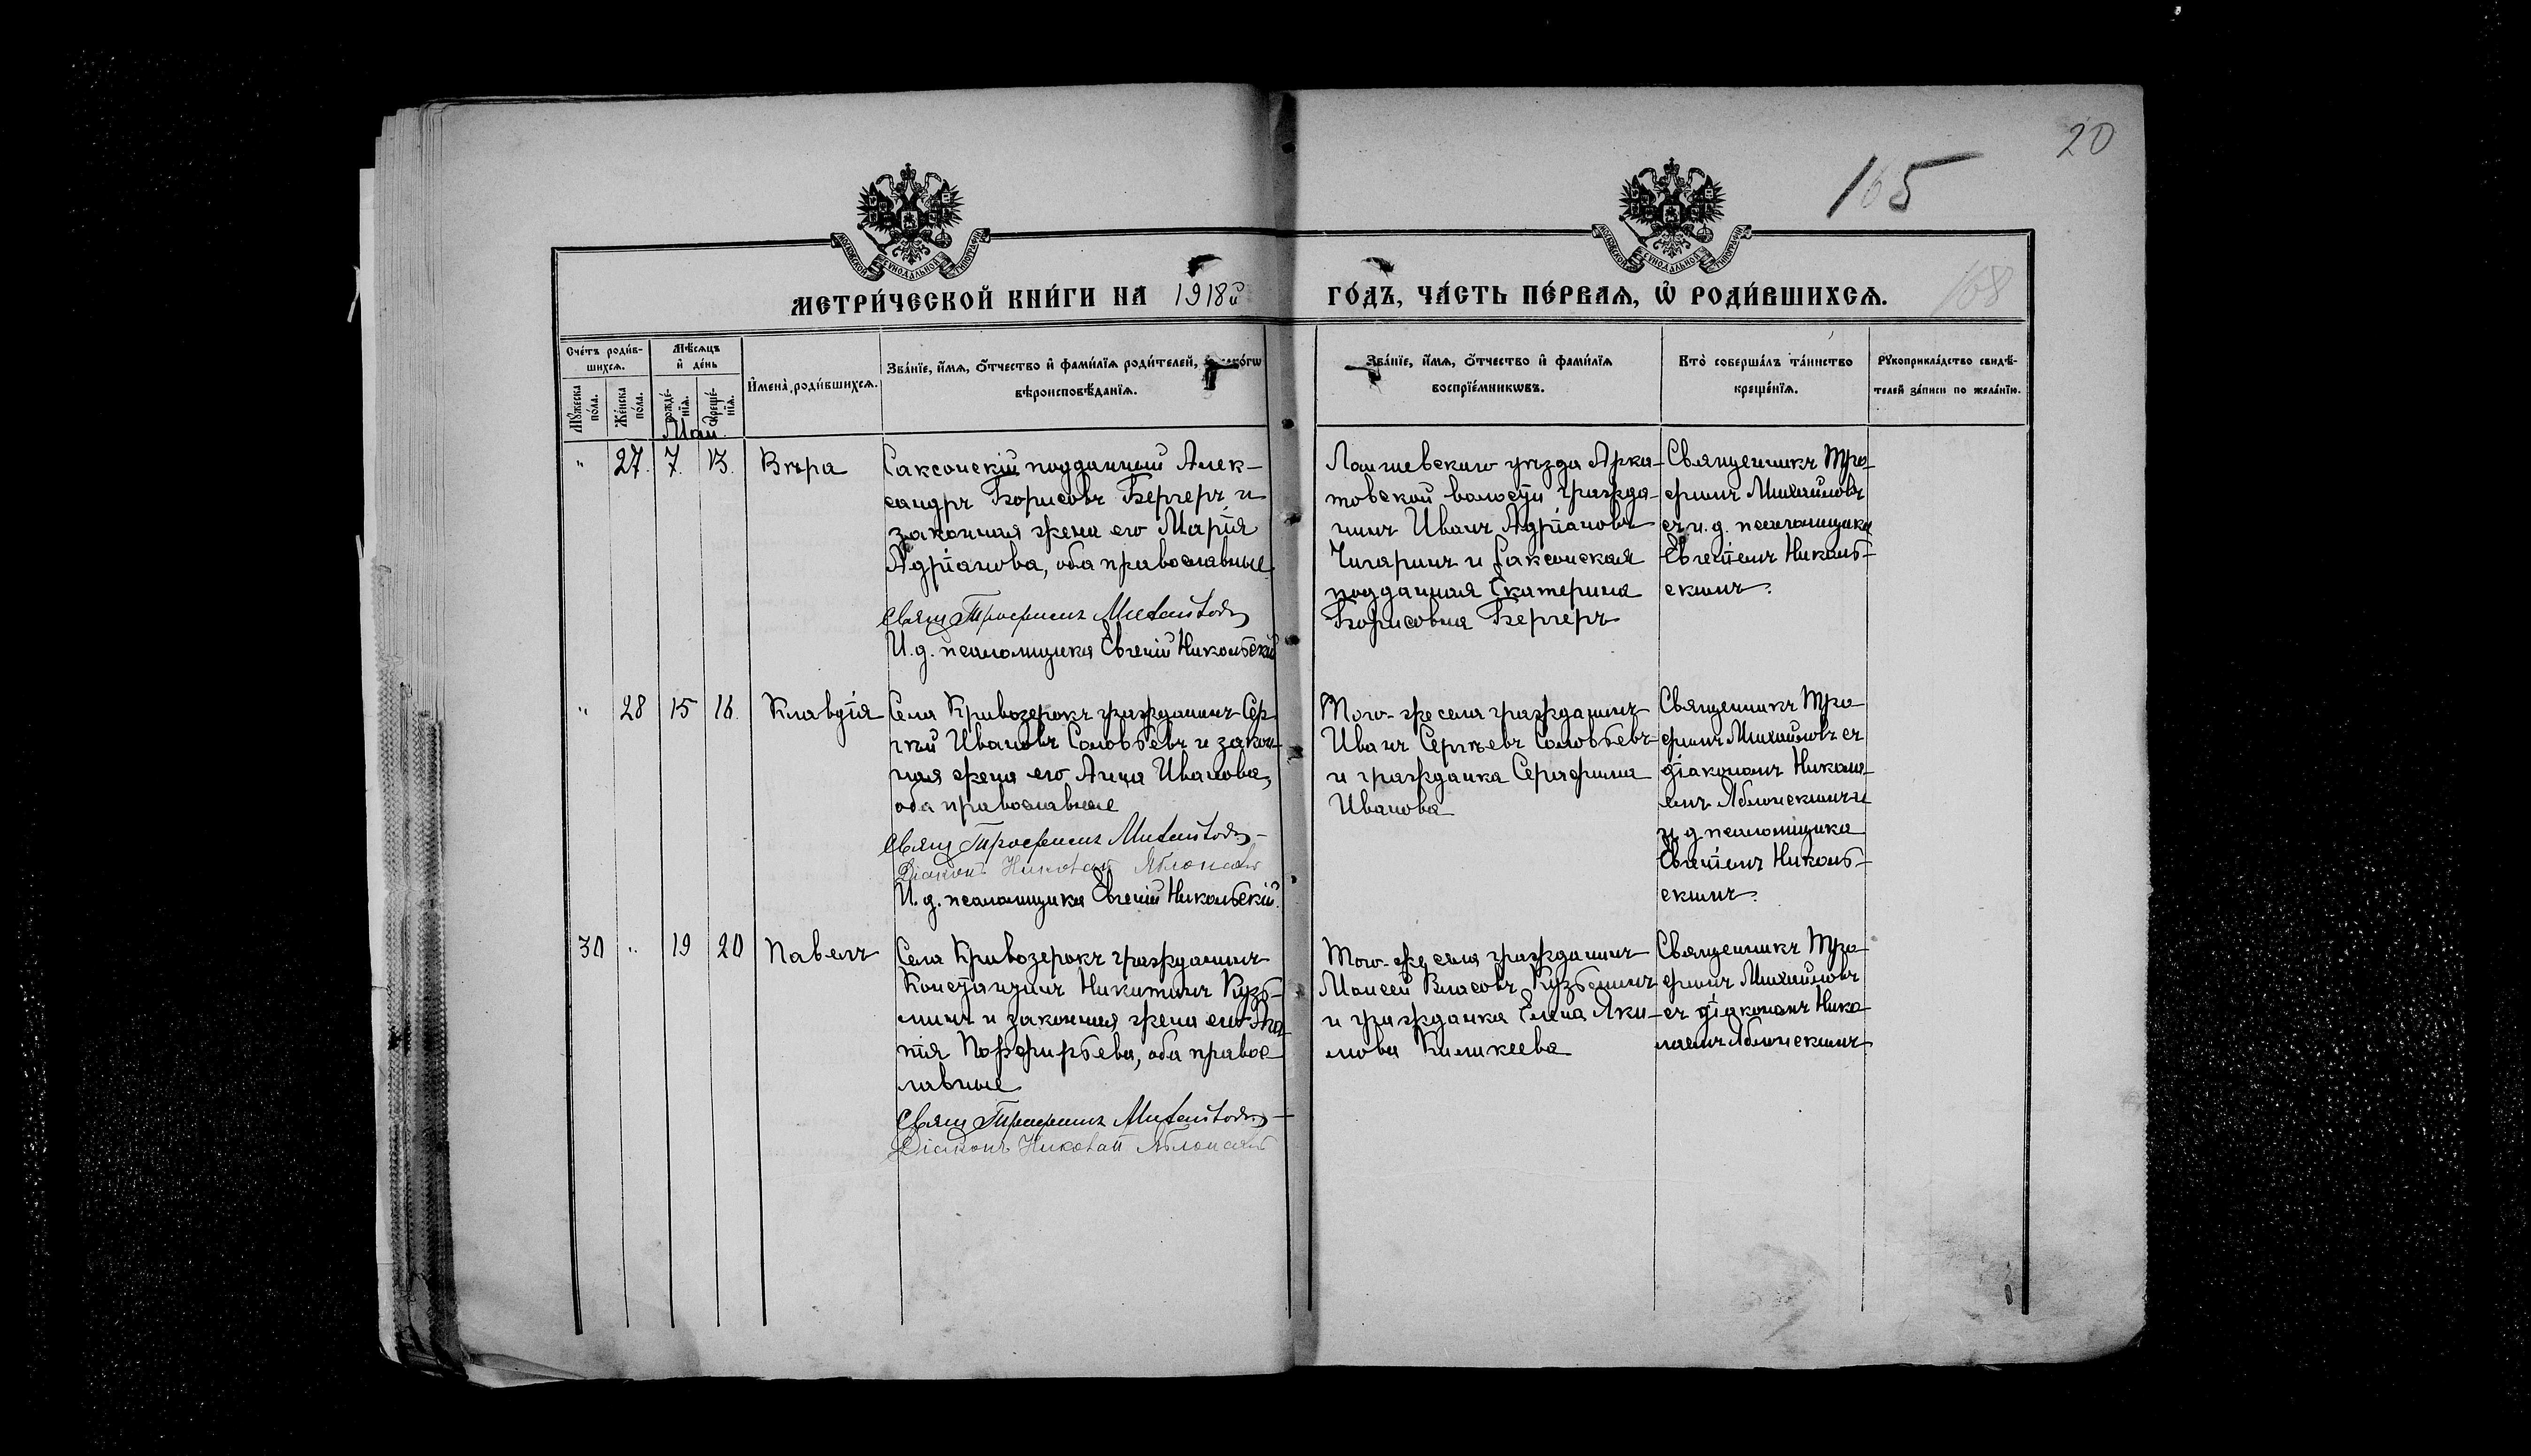 20
165
168
МОСКОВСКОЙ СѴНОДАЛЬНОЙ ТИПОГРАФІИ
МОСКОВСКОЙ СѴНОДАЛЬНОЙ ТИПОГРАФІИ
МЕТРИ́ЧЕСКОЙ КНИ́ГИ НА 1918й ГО́ДЪ, ЧА́СТЬ ПЕ́РВАѦ, Ѡ҆ РОДИ́ВШИХСѦ.
Сче́тъ роди́в-
шихсѧ.
Мꙋ́жеска по́ла.
Же́нска по́ла.
Мѣ́сѧцъ
и҆ де́нь
рожде́-
нїѧ.
креще́-
нїѧ.
И҆мена̀ роди́вшихсѧ.
Зва́нїе, и҆́мѧ, ѻ҆́тчество и҆ фами́лїѧ роди́телей,
вѣроисповѣ́данїѧ.
Зва́нїе, и҆́мѧ, ѻ҆́тчество и҆ фами́лїѧ
воспрїе́мникѡвъ.
Кто̀ соверша́лъ та́инство
креще́нїѧ.
Рꙋкоприкла́дство свидѣ́-
телей за́писи по жела́нїю.
Май
" 27. 7. 13. Вѣра
Саксонскій подданный Алек-
сандръ Борисовъ Бергеръ и
законная жена его Марія
Адріанова, оба православные.
Свящ Трофимъ Михайловъ
И. д. псаломщика Евгеній Никольскій
Лаишевскаго уѣзда Арка-
товской волости гражда-
нинъ Иванъ Адріановъ
Чигаринъ и Саксонская
подданная Екатерина
Борисовна Бергеръ
Священникъ Тро-
фимъ Михайловъ
съ и. д. псаломщика
Евгеніемъ Николь-
скимъ.
" 28 15 16. Клавдія
Села Кривозерокъ гражданинъ Сер-
гѣй Ивановъ Соловьевъ и закон-
ная жена его Анна Иванова,
оба православные
Свящ Трофимъ Михайловъ
Діаконъ Николай Яблонскій
И. д. псаломщика Евгеній Никольскій.
Того-же села гражданинъ
Иванъ Сергѣевъ Соловьевъ
и гражданка Серафима
Иванова
Священникъ Тро-
фимъ Михайловъ съ
діакономъ Никола-
емъ Яблонскимъ и
и д псаломщика
Евгеніемъ Николь-
скимъ.
30 " 19 20 Павелъ
Села Кривозерокъ гражданинъ
Константинъ Никитинъ Кузь-
минъ и законная жена его
Порфирьева, оба правос-
лавные
Свящ Трофимъ Михайловъ
Діаконъ Николай Яблонскій
Того-же села гражданинъ
Моисей Власовъ Кузьминъ
и гражданка Елена Яки-
мова
Священникъ Тро-
фимъ Михайловъ
съ діакономъ Нико-
лаемъ Яблонскимъ